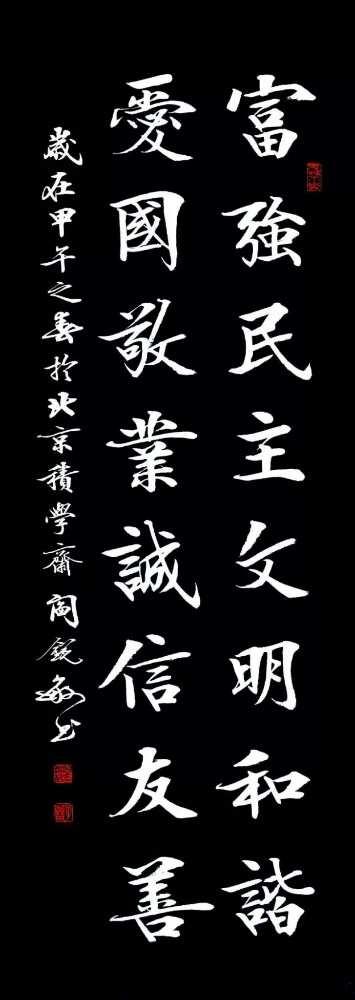 富強民主文明和諧
愛國敬業誠信友善
歲在甲午之春於北京積學齋閻銳敏書